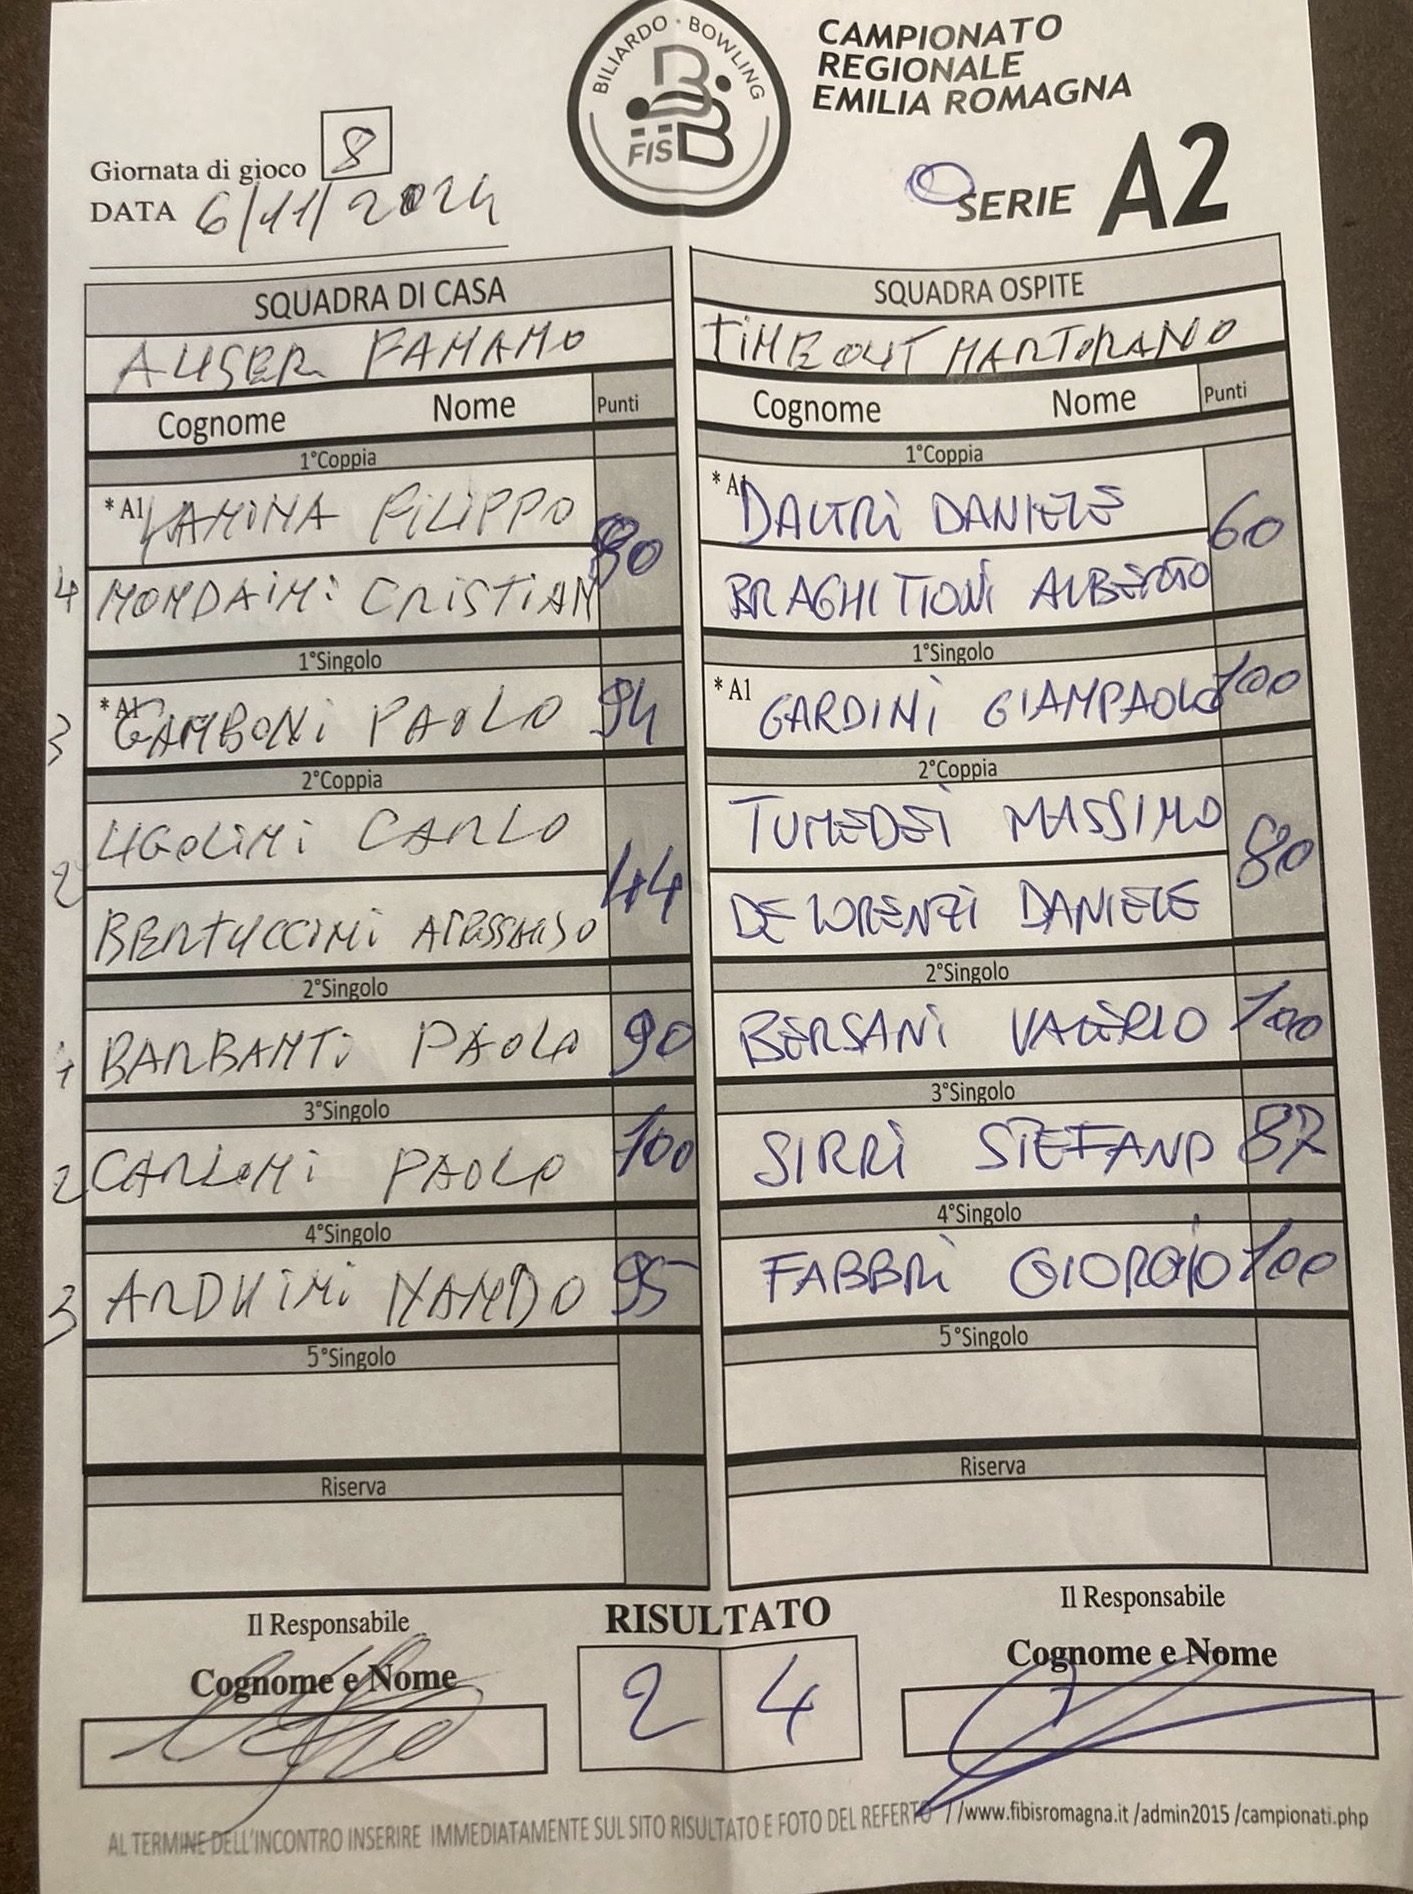 BILIARDO · BOWLING
FISBB
CAMPIONATO
REGIONALE
EMILIA ROMAGNA
SERIE A2
Giornata di gioco 8
DATA 6/11/2024
SQUADRA DI CASA
AUSER FAMAMO
Cognome Nome Punti
1°Coppia
*A1 FILIPPO 80
4 MONDAIMI CRISTIAN
1°Singolo
3 *A1 GAMBONI PAOLO 94
2°Coppia
UGOLIMI CARLO
2 BERTUCCIMI 44
2°Singolo
1 BARBAMTI PAOLO 90
3°Singolo
2 CARLOMI PAOLO 100
4°Singolo
3 ARDUIMI NAMDO 95
5°Singolo
Riserva
SQUADRA OSPITE
TIMEOUT MARTORANO
Cognome Nome Punti
1°Coppia
*A1 DALTRI DANIELE 60
BRAGHITTONI ALBERTO
1°Singolo
*A1 GARDINI GIAMPAOLO 100
2°Coppia
TUMEDEI MASSIMO 80
DE LORENZI DANIELE
2°Singolo
BERSANI VALERIO 100
3°Singolo
SIRRI STEFANO 87
4°Singolo
FABBRI GIORGIO 100
5°Singolo
Riserva
Il Responsabile
Cognome e Nome
RISULTATO
2 4
Il Responsabile
Cognome e Nome
AL TERMINE DELL'INCONTRO INSERIRE IMMEDIATAMENTE SUL SITO RISULTATO E FOTO DEL REFERTO //www.fibisromagna.it /admin2015 /campionati.php